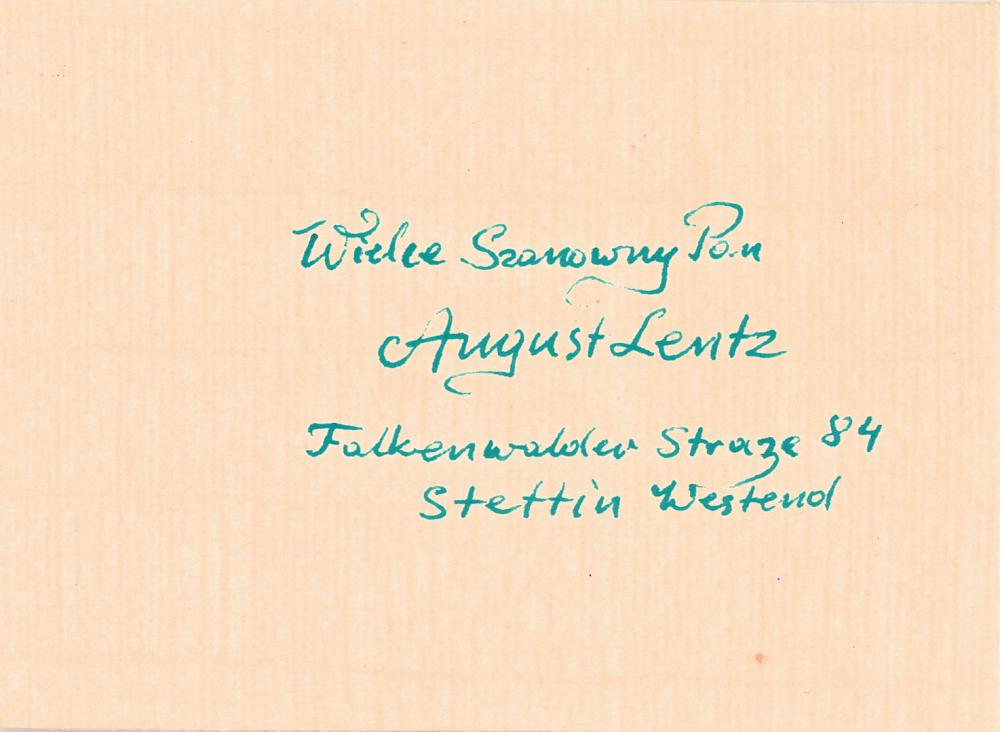 Wielce Szanowny Pan
August Lentz
Falkenwalder Straze 84
Stettin Westend